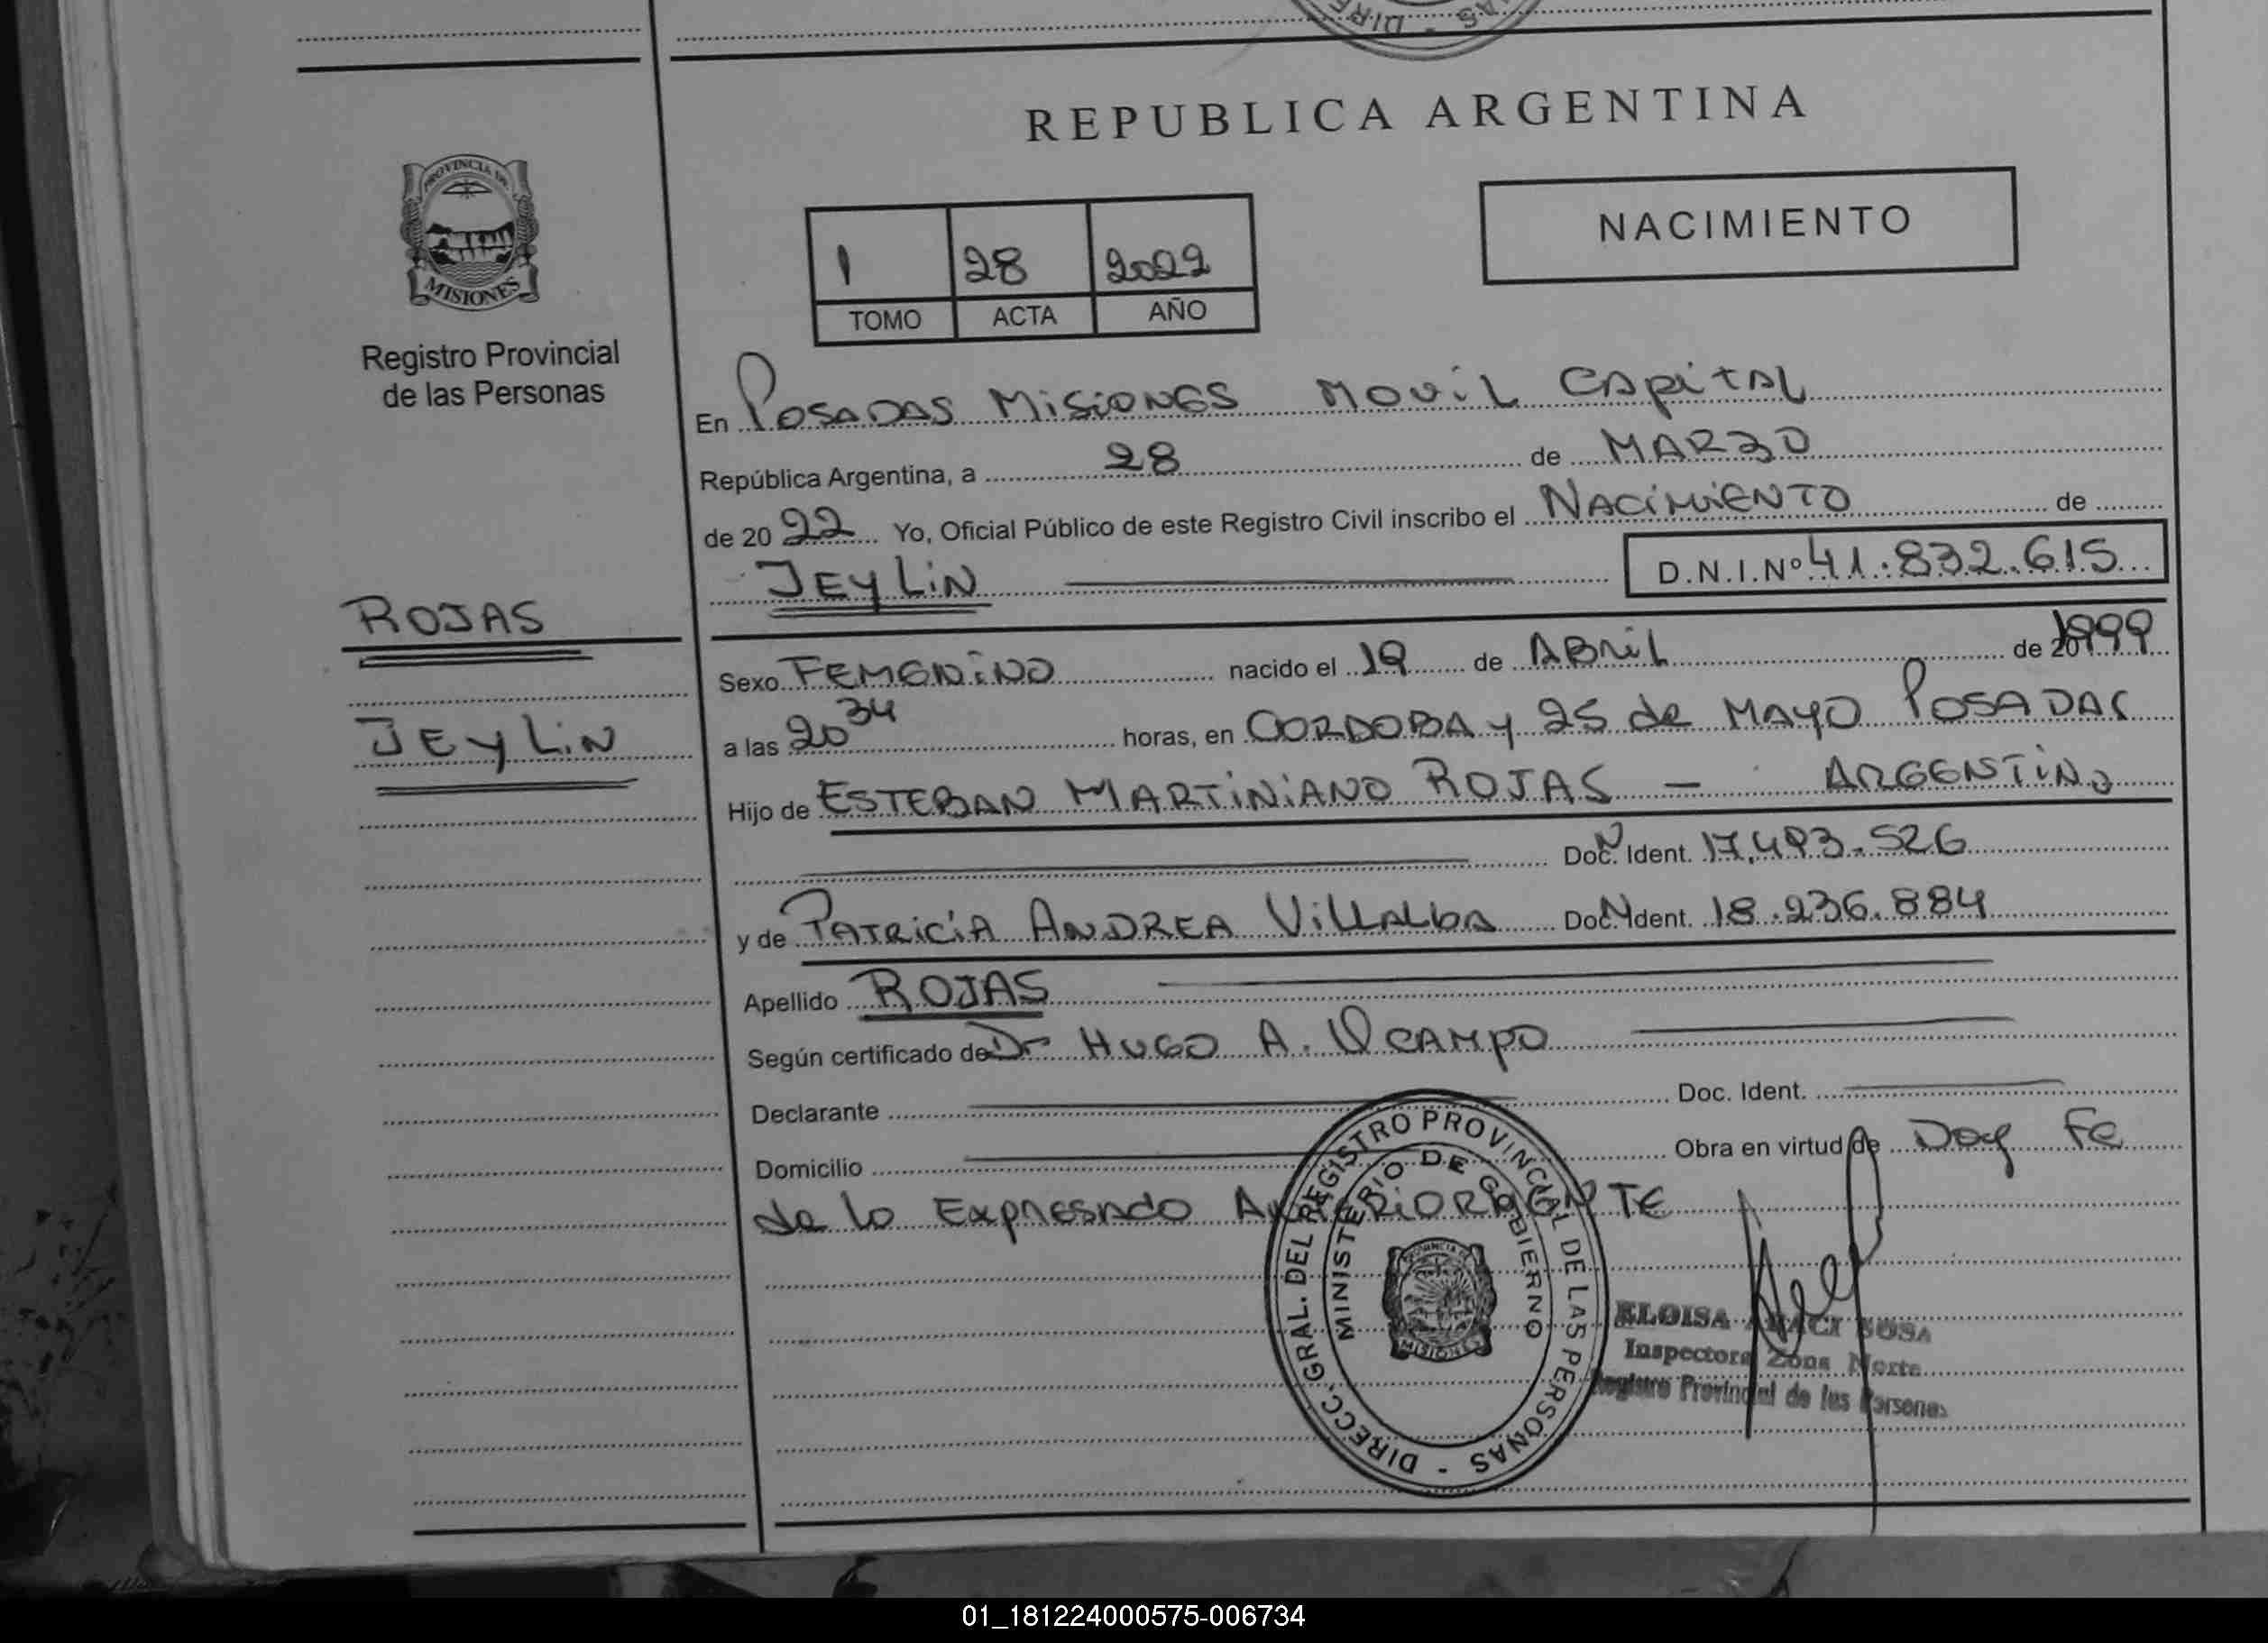 DIRE AS
REPUBLICA ARGENTINA
PROVINCIA DE
MISIONES
Registro Provincial
de las Personas
NACIMIENTO
1 28 2022
TOMO ACTA AÑO
En POSADAS MISIONES MOVIL CAPITAL
República Argentina, a 28 de MARZO
de 20 22 Yo, Oficial Público de este Registro Civil inscribo el NACIMIENTO de
JEYLIN D.N.I.Nº 41.832.615
ROJAS
Sexo FEMENINO nacido el 19 de ABRIL de 20 1999
JEYLIN
a las 20 34 horas, en CORDOBA Y 25 de MAYO POSADAS
Hijo de ESTEBAN MARTINIANO ROJAS - ARGENTINO
Doc. N Ident. 17.493.526
y de PATRICIA ANDREA VILLALBA Doc. N Ident. 18.236.884
Apellido ROJAS
Según certificado de Dr HUGO A. OCAMPO
Declarante Doc. Ident.
Domicilio Obra en virtud de Doy Fe
de lo EXPRESADO ANTERIORMENTE
DIRECC. GRAL. DEL REGISTRO PROVINCIAL DE LAS PERSONAS -
MINISTERIO DE GOBIERNO
MISIONES
ELOISA SOSA
Inspectora Zona Norte
Registro Provincial de las Personas
01_181224000575-006734